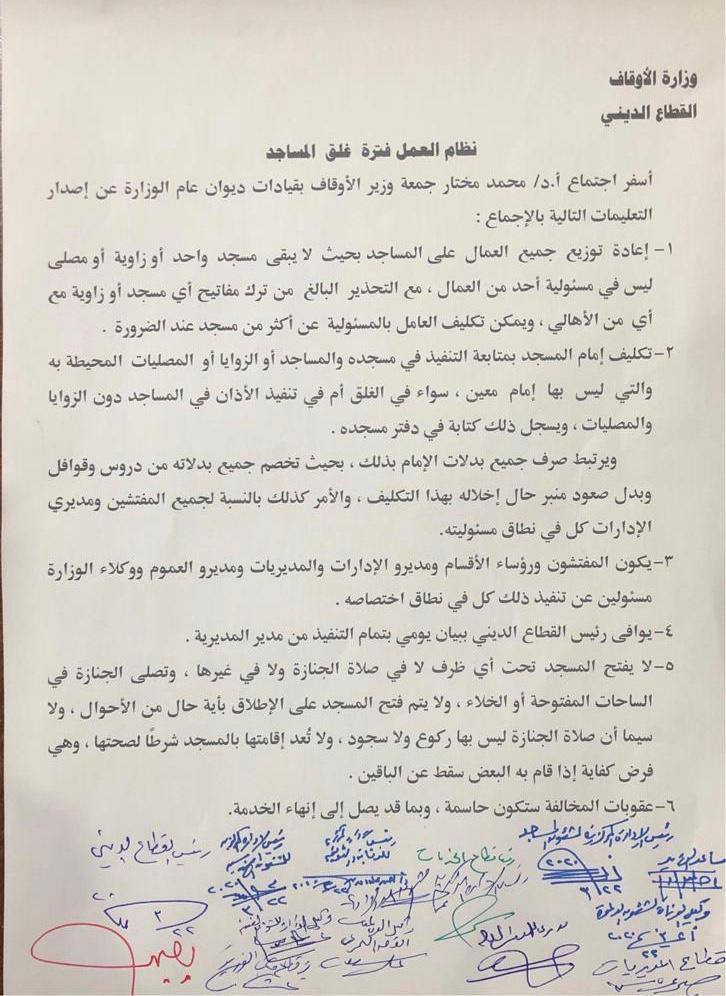 وزارة الأوقاف
القطاع الديني
نظام العمل فترة غلق المساجد
أسفر اجتماع أ.د/ محمد مختار جمعة وزير الأوقاف بقيادات ديوان عام الوزارة عن إصدار
التعليمات التالية بالإجماع :
١- إعادة توزيع جميع العمال على المساجد بحيث لا يبقى مسجد واحد أو زاوية أو مصلى
ليس في مسئولية أحد من العمال ، مع التحذير البالغ من ترك مفاتيح أي مسجد أو زاوية مع
أي من الأهالي ، ويمكن تكليف العامل بالمسئولية عن أكثر من مسجد عند الضرورة .
٢- تكليف إمام المسجد بمتابعة التنفيذ في مسجده والمساجد أو الزوايا أو المصليات المحيطة به
والتي ليس بها إمام معين ، سواء في الغلق أم في تنفيذ الأذان في المساجد دون الزوايا
والمصليات ، ويسجل ذلك كتابة في دفتر مسجده .
ويرتبط صرف جميع بدلات الإمام بذلك ، بحيث تخصم جميع بدلاته من دروس وقوافل
وبدل صعود منبر حال إخلاله بهذا التكليف ، والأمر كذلك بالنسبة لجميع المفتشين ومديري
الإدارات كل في نطاق مسئوليته.
٣- يكون المفتشون ورؤساء الأقسام ومديرو الإدارات والمديريات ومديرو العموم ووكلاء الوزارة
مسئولين عن تنفيذ ذلك كل في نطاق اختصاصه .
٤- يوافى رئيس القطاع الديني ببيان يومي بتمام التنفيذ من مدير المديرية .
٥- لا يفتح المسجد تحت أي ظرف لا في صلاة الجنازة ولا في غيرها ، وتصلى الجنازة في
الساحات المفتوحة أو الخلاء ، ولا يتم فتح المسجد على الإطلاق بأية حال من الأحوال ، ولا
سيما أن صلاة الجنازة ليس بها ركوع ولا سجود ، ولا تُعد إقامتها بالمسجد شرطًا لصحتها ، وهي
فرض كفاية إذا قام به البعض سقط عن الباقين .
٦- عقوبات المخالفة ستكون حاسمة ، وبما قد يصل إلى إنهاء الخدمة.
رئيس الإدارة المركزية لشئون المساجد
رئيس القطاع الديني
قطاع المديريات